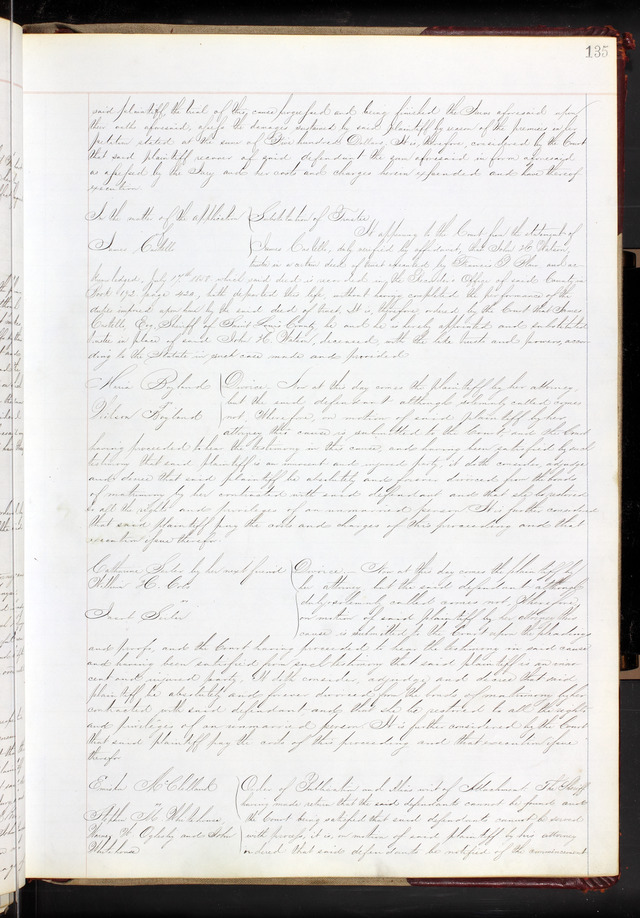 135
said plaintiff the trial of this cause progressed and being finished the Jurors aforesaid upon
their oaths aforesaid, assess the damages sustained by said plaintiff by reason of the premises in her
petition stated at the sum of Five hundred Dollars, It is, therefore, considered by the Court
that said plaintiff recover of said defendant the sum aforesaid in form aforesaid
as assessed by the Jury and her costs and charges herein expended and have thereof
execution
In the matter of the application Substitution of Trustee
It appearing to the Court from the statement of
James Castello James Castello, duly verified by affidavit, that John H.
trustee in a certain deed of trust executed by Francis and ac-
knowledged, July 17th which said deed is recorded in the Recorder's Office of said County in
Book 192 page 424, hath departed this life, without having completed the performance of the
duties imposed upon him by the said deed of trust. It is, therefore, ordered by the Court that James
Castello, Esq. Sheriff of Saint Louis County, be and he is hereby appointed and substituted
trustee in place of said John H. deceased, with the like trusts and powers, accor-
ding to the Statute in such case made and provided
Maria Boyland Divorce. Now at this day comes the plaintiff by her attorney,
vs but the said defendant although solemnly called, comes
Boyland not, Therefore, on motion of said plaintiff by her
attorney this cause is submitted to the Court, and the Court
having proceeded to hear the testimony in this cause, and having been satisfied by such
testimony that said plaintiff is an innocent and injured party, it doth consider, adjudge
and decree that said plaintiff be absolutely and forever divorced from the bonds
of matrimony by her contracted with said defendant and that she be restored
to all the rights and privileges of an unmarried person It is further considered
that said plaintiff pay the costs and charges of this proceeding and that
execution issue therefor.
Catharine by her next friend Divorce. Now at this day comes the plaintiff by
William H. her attorney, but the said defendant although
vs duly solemnly called comes not, Therefore,
on motion of said plaintiff by her attorney this
cause is submitted to the Court upon the pleadings
and proofs, and the Court having proceeded to hear the testimony in said cause
and having been satisfied from such testimony that said plaintiff is an inno-
cent and injured party, It doth consider, adjudge, and decree that said
plaintiff be absolutely and forever divorced from the bonds of matrimony by her
contracted with said defendant, and that she be restored to all the rights
and privileges of an unmarried person It is further considered by the Court
that said plaintiff pay the costs of this proceeding and that execution issue
therefor
McClelland Order of Publication and Alias writ of Attachment. The Sheriff
vs having made return that the said defendants cannot be found and
M. the Court being satisfied that said defendants cannot be served
Henry W. Oglesby and John with process, it is on motion of said plaintiff by her attorney
Whitehouse ordered that said defendants be notified of the commencement